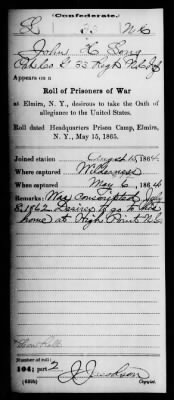 Confederate.
L 33 N.C
John H. Long
Appears on a
Roll of Prisoners of War
at Elmira, N. Y., desirous to take the Oath of
allegiance to the United States.
Roll dated Headquarters Prison Camp, Elmira,
N. Y., May 15, 1865.
Joined station August 15, 1864.
Where captured Wilderness
When captured May 6, 1864
Remarks: Was conscripted July
8, 1862 Desires to go to his
home at High Point N.C.
Number of roll:
104; part 2
J. Jacobson
Copyist.